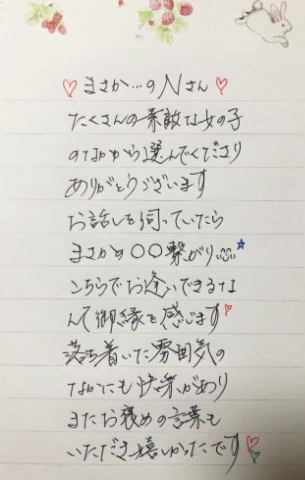 ♡まさか…のNさん♡
たくさんの素敵な女の子
のなかから選んでくださり
ありがとうございます
お話しを伺っていたら
まさかの〇〇繋がり☺☆
こちらでお逢いできるな
んて御縁を感じます♡
落ち着いた雰囲気の
なかにも渋みがあり
またお褒めの言葉も
いただき嬉しかったです♡♡